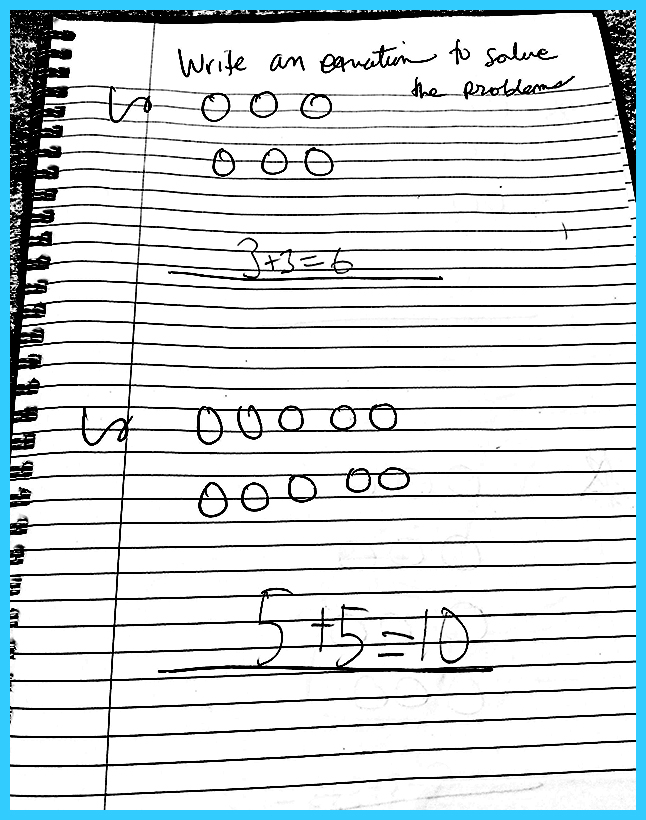 Write an equation to solve
the problems
3+3=6
5+5=10